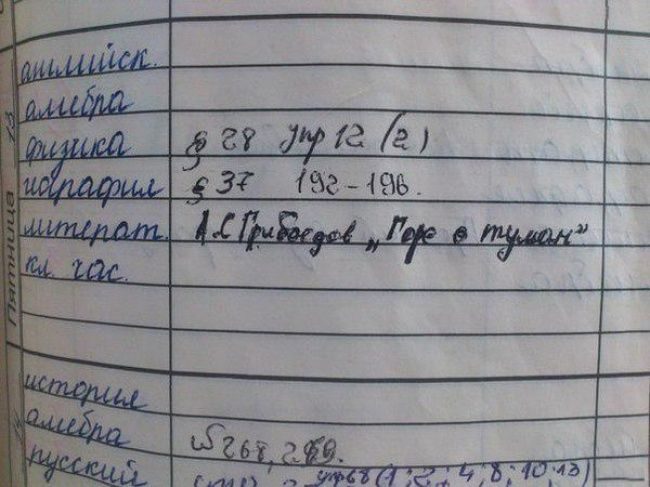 Пятница
английск.
алгебра
физика § 28 упр 12 (2)
география § 37 192-196.
литерат. А.С Грибоедов „Горе о туман"
кл. час.
история
алгебра №268, 269.
русский упр68 (1; 2; 4; 8; 10; 13)